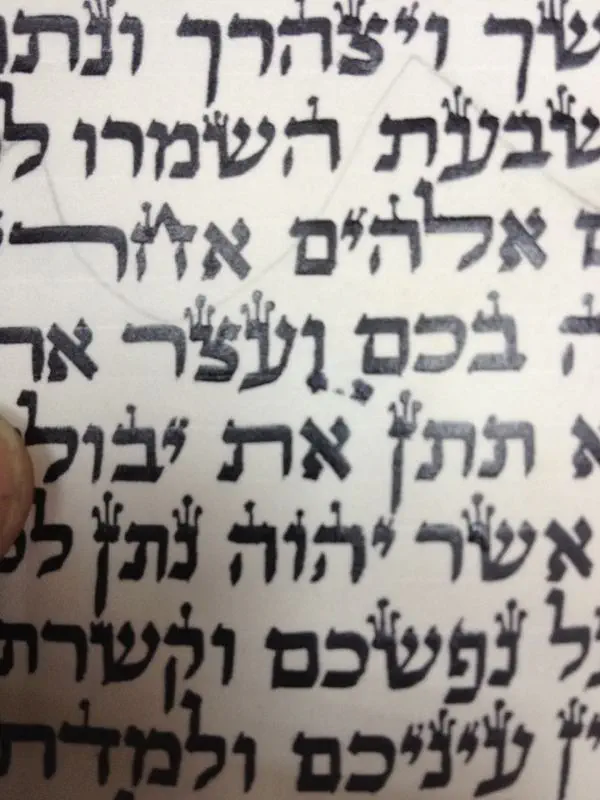 שך ויצהרך ונתת
שבעת השמרו ל
ם אלהים אחרי
ה בכם ועצר את
א תתן את יבול
אשר יהוה נתן לכ
ל נפשכם וקשרת
ין עיניכם ולמדת